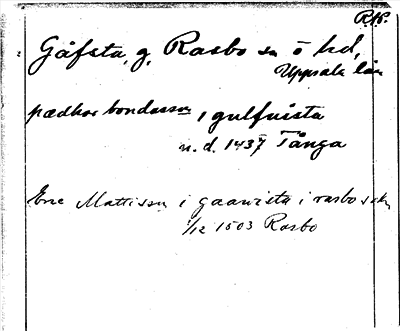 RAp.
Gåfsta g. Rasbo sn ö hd,
Uppsala län
pædhar bondasson, gulfuista
n. d. 1437 Tånga
Eric Mattisson i gaawista i rasbo sokn
1/12 1503 Rasbo